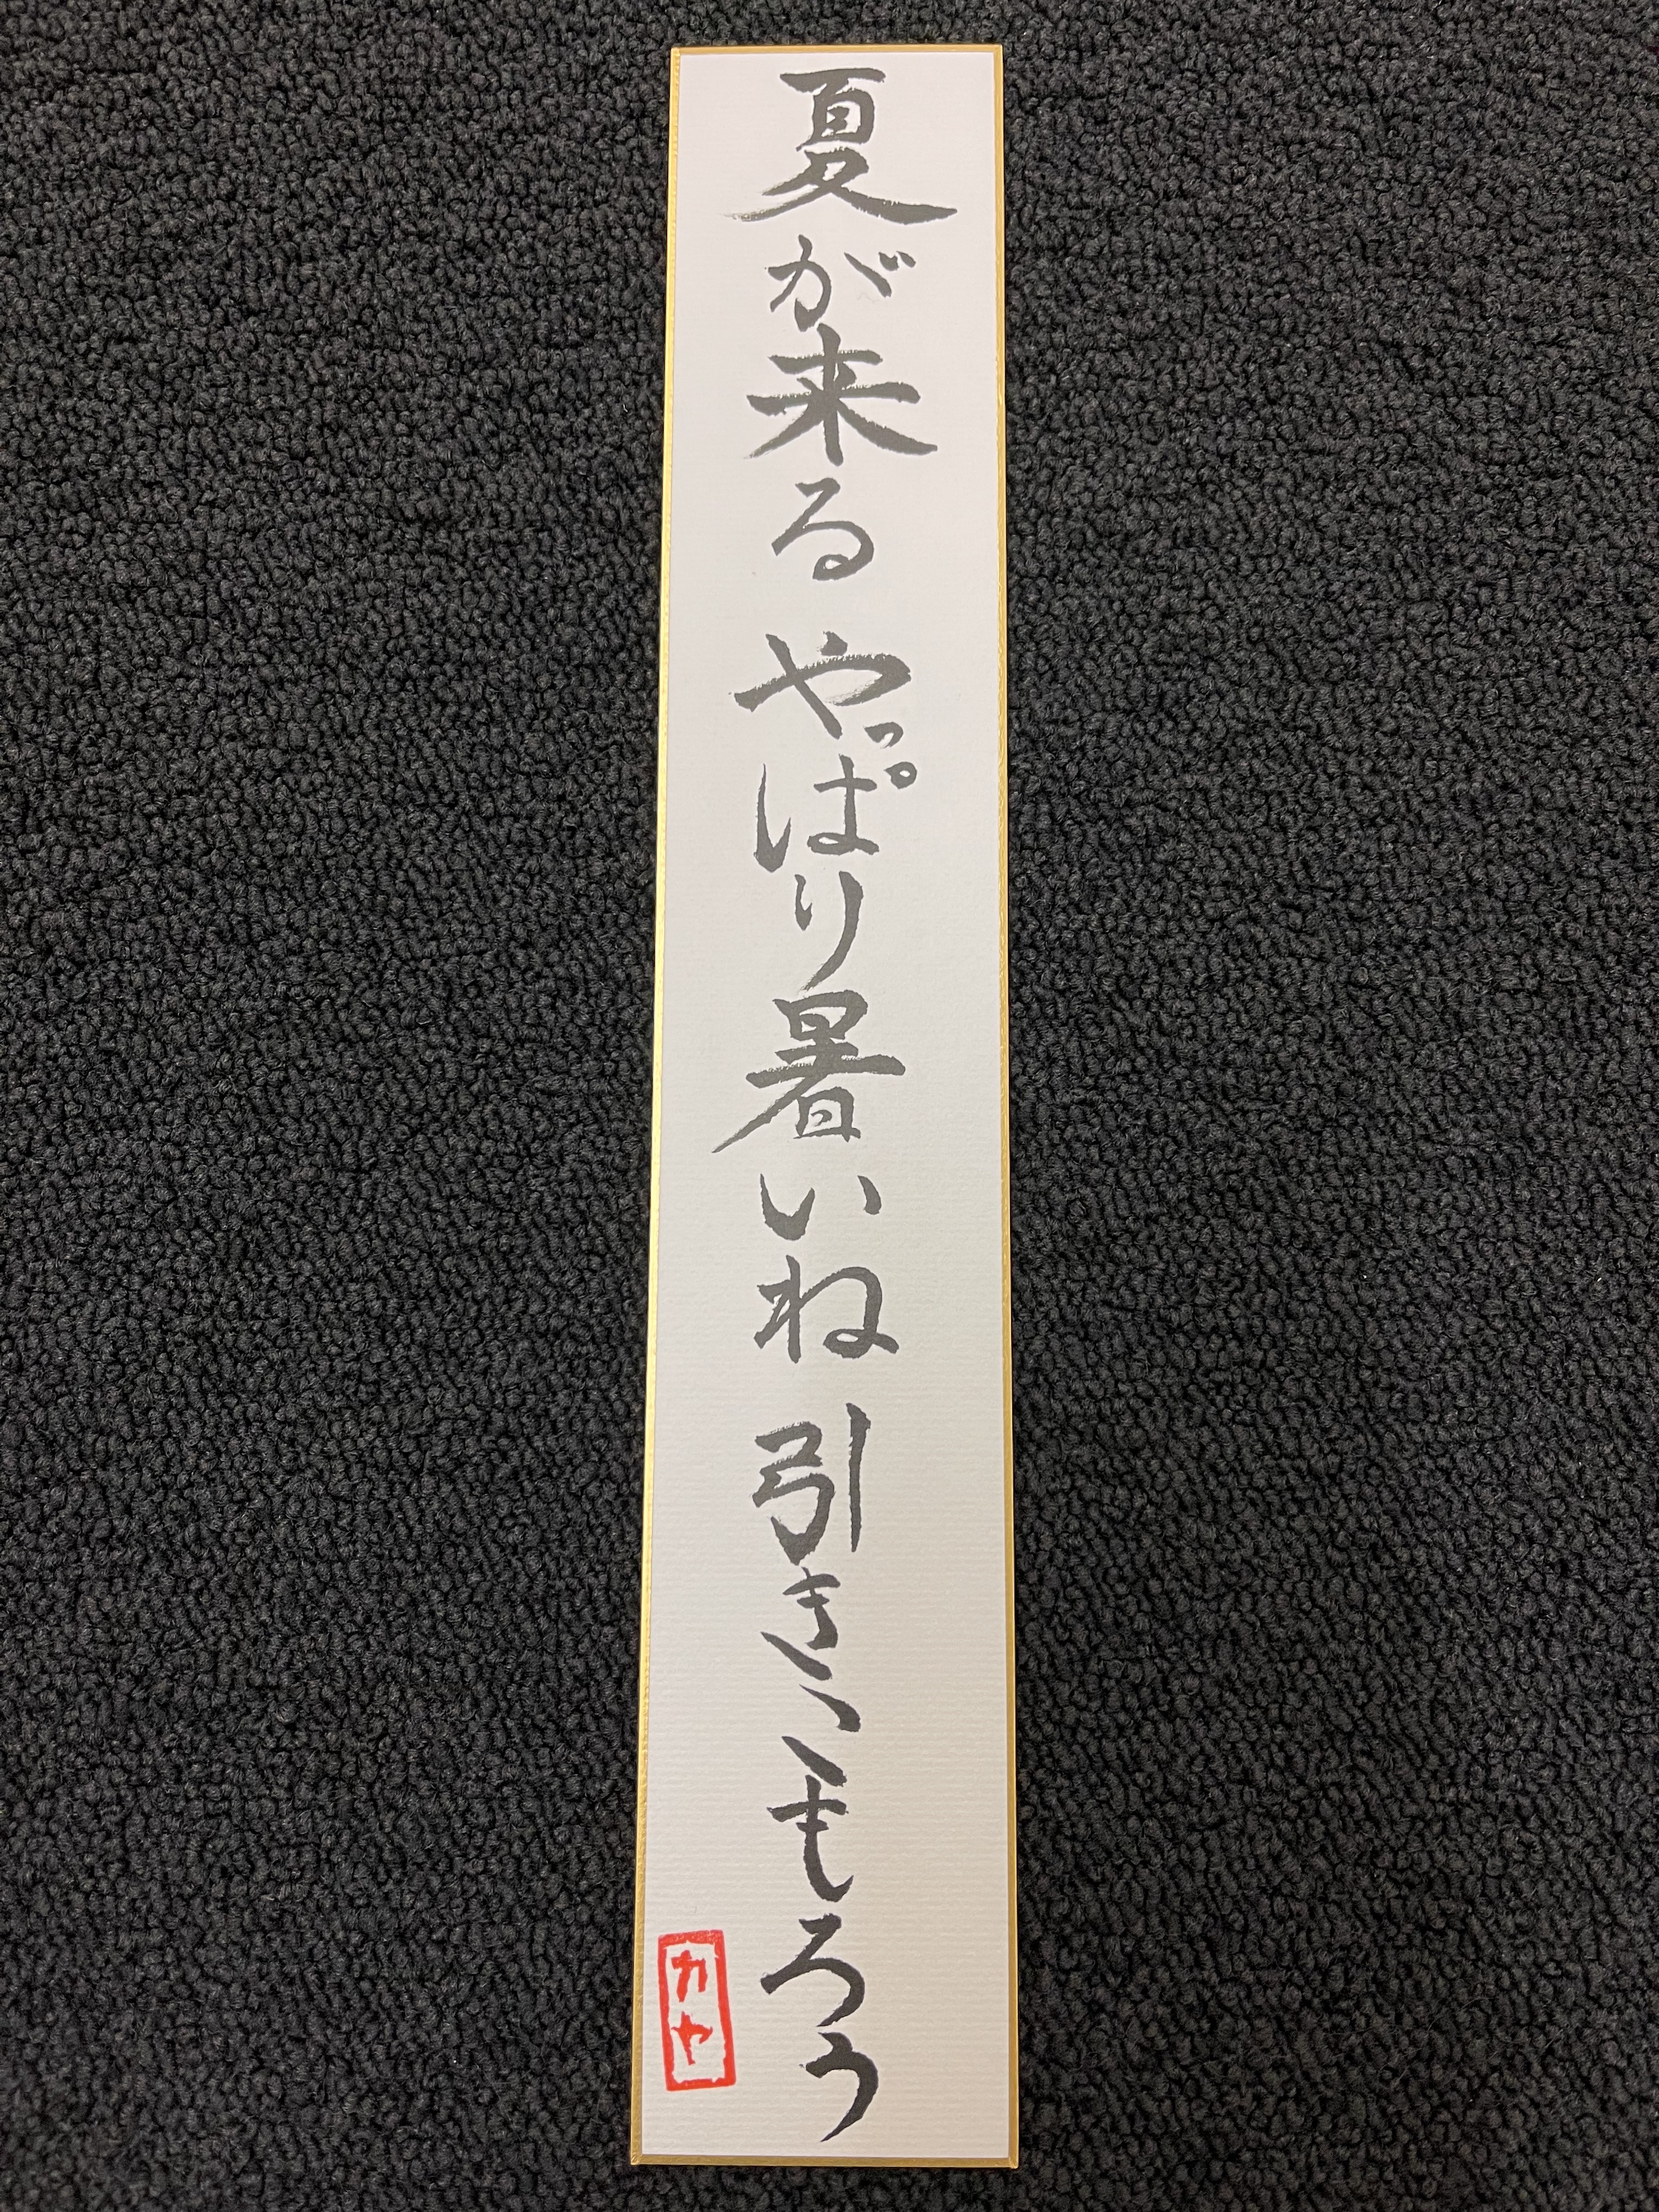 夏が来る やっぱり暑いね 引きこもろう
カヤ